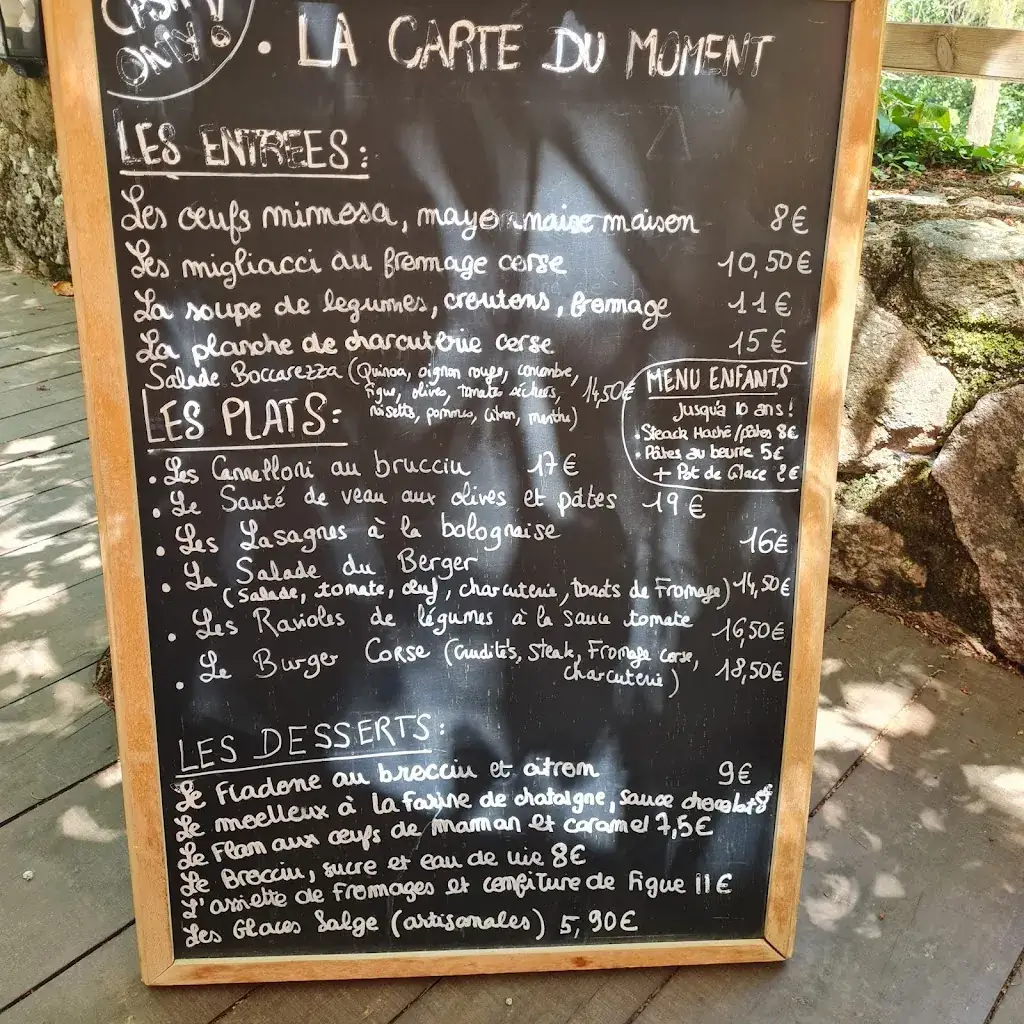 CASH
ONLY!
• LA CARTE DU MOMENT
LES ENTREES:
Les œufs mimosa, mayonnaise maison 8€
Les migliacci au fromage corse 10,50€
La soupe de legumes, croutons, fromage 11€
La planche de charcuterie corse 15€
Salade Boccarezza (Quinoa, oignon rouge, concombre,
figue, olives, tomates séchées, 14,50€
noisette, pommes, citron, menthe)
MENU ENFANTS
Jusqu'à 10 ans!
• Steack Haché/pâtes 8€
• Pâtes au beurre 5€
+ Pot de Glace 2€
LES PLATS:
• Les Cannelloni au brucciu 17€
• Le Sauté de veau aux olives et pâtes 19€
• Les Lasagnes à la bolognaise 16€
• La Salade du Berger
(Salade, tomate, œuf, charcuterie, toasts de Fromage) 14,50€
• Les Ravioles de légumes à la sauce tomate 16,50€
• Le Burger Corse (Crudités, Steak, Fromage corse,
charcuterie) 18,50€
LES DESSERTS:
Le Fiadone au brocciu et citron 9€
Le moelleux à la farine de chataigne, sauce chocolat
Le Flan aux œufs de maman et caramel 7,5€
Le Brocciu, sucre et eau de vie 8€
L'assiette de Fromages et confiture de Figue 11€
Les Glaces Salge (artisanales) 5,90€